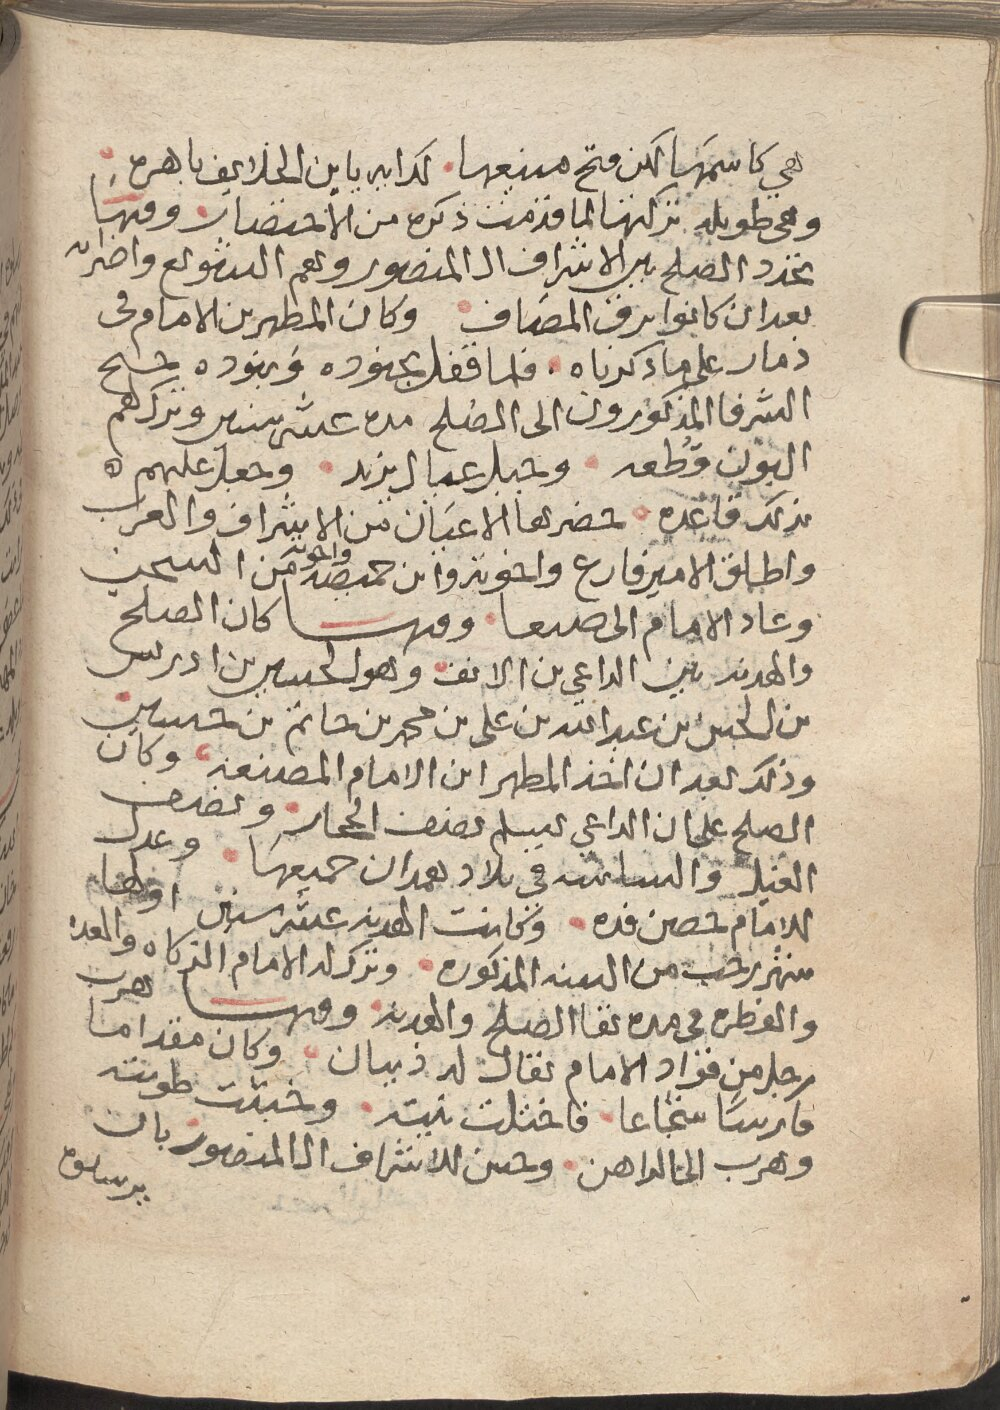 هي كاسمها لكن فتح منيعها لك ايه يا بن الخلايف باهره
وهي طويله تركتها لما قدمت ذكره من الاختصار ومنها
تجدد الصلح بين الاشراف ال المنصور وهم الشويع واضرابه
بعد ان كانوا برق المصاف وكان المطهر بن الامام في
ذمار على ما ذكرناه فلما قفل بجنوده وبنوده جنح
الشرفا المذكورون الى الصلح مده عشر سنين وترك لهم
البون قطعه وجبل عيال يزيد وجعل عليهم
بذلك قاعده حضرها الاعيان من الاشراف والعرب
واطلق الامير فارع واخوته وابن حميضه واخوته من السجن
وعاد الامام الى صنعا ومنها كان الصلح
والهدنه بين الداعي بن الانف وهو الحسين بن ادريس
بن الحسن بن عبد الله بن علي بن محمد بن حاتم بن حسين
وذلك بعد ان اخذ المطهر ابن الامام المصنعه وكان
الصلح على ان الداعي يسلم نصف الجار ونصف
الفيل والساسه في بلاد همدان جميعها وعدل
للامام حصن فده وكانت الهدنه عشر سنين اولها
شهر رجب من السنه المذكوره وترك له الامام الزكاه والعدا
والفطره في مده بقا الصلح والهدنه ومنها هرب
رجل من قواد الامام يقال له ذيبان وكان مقداما
فارسا شجاعا فاختلت نيته وخبثت طويته
وهرب الى الداهن وحسن للاشراف ال المنصور بان
يرسلوه